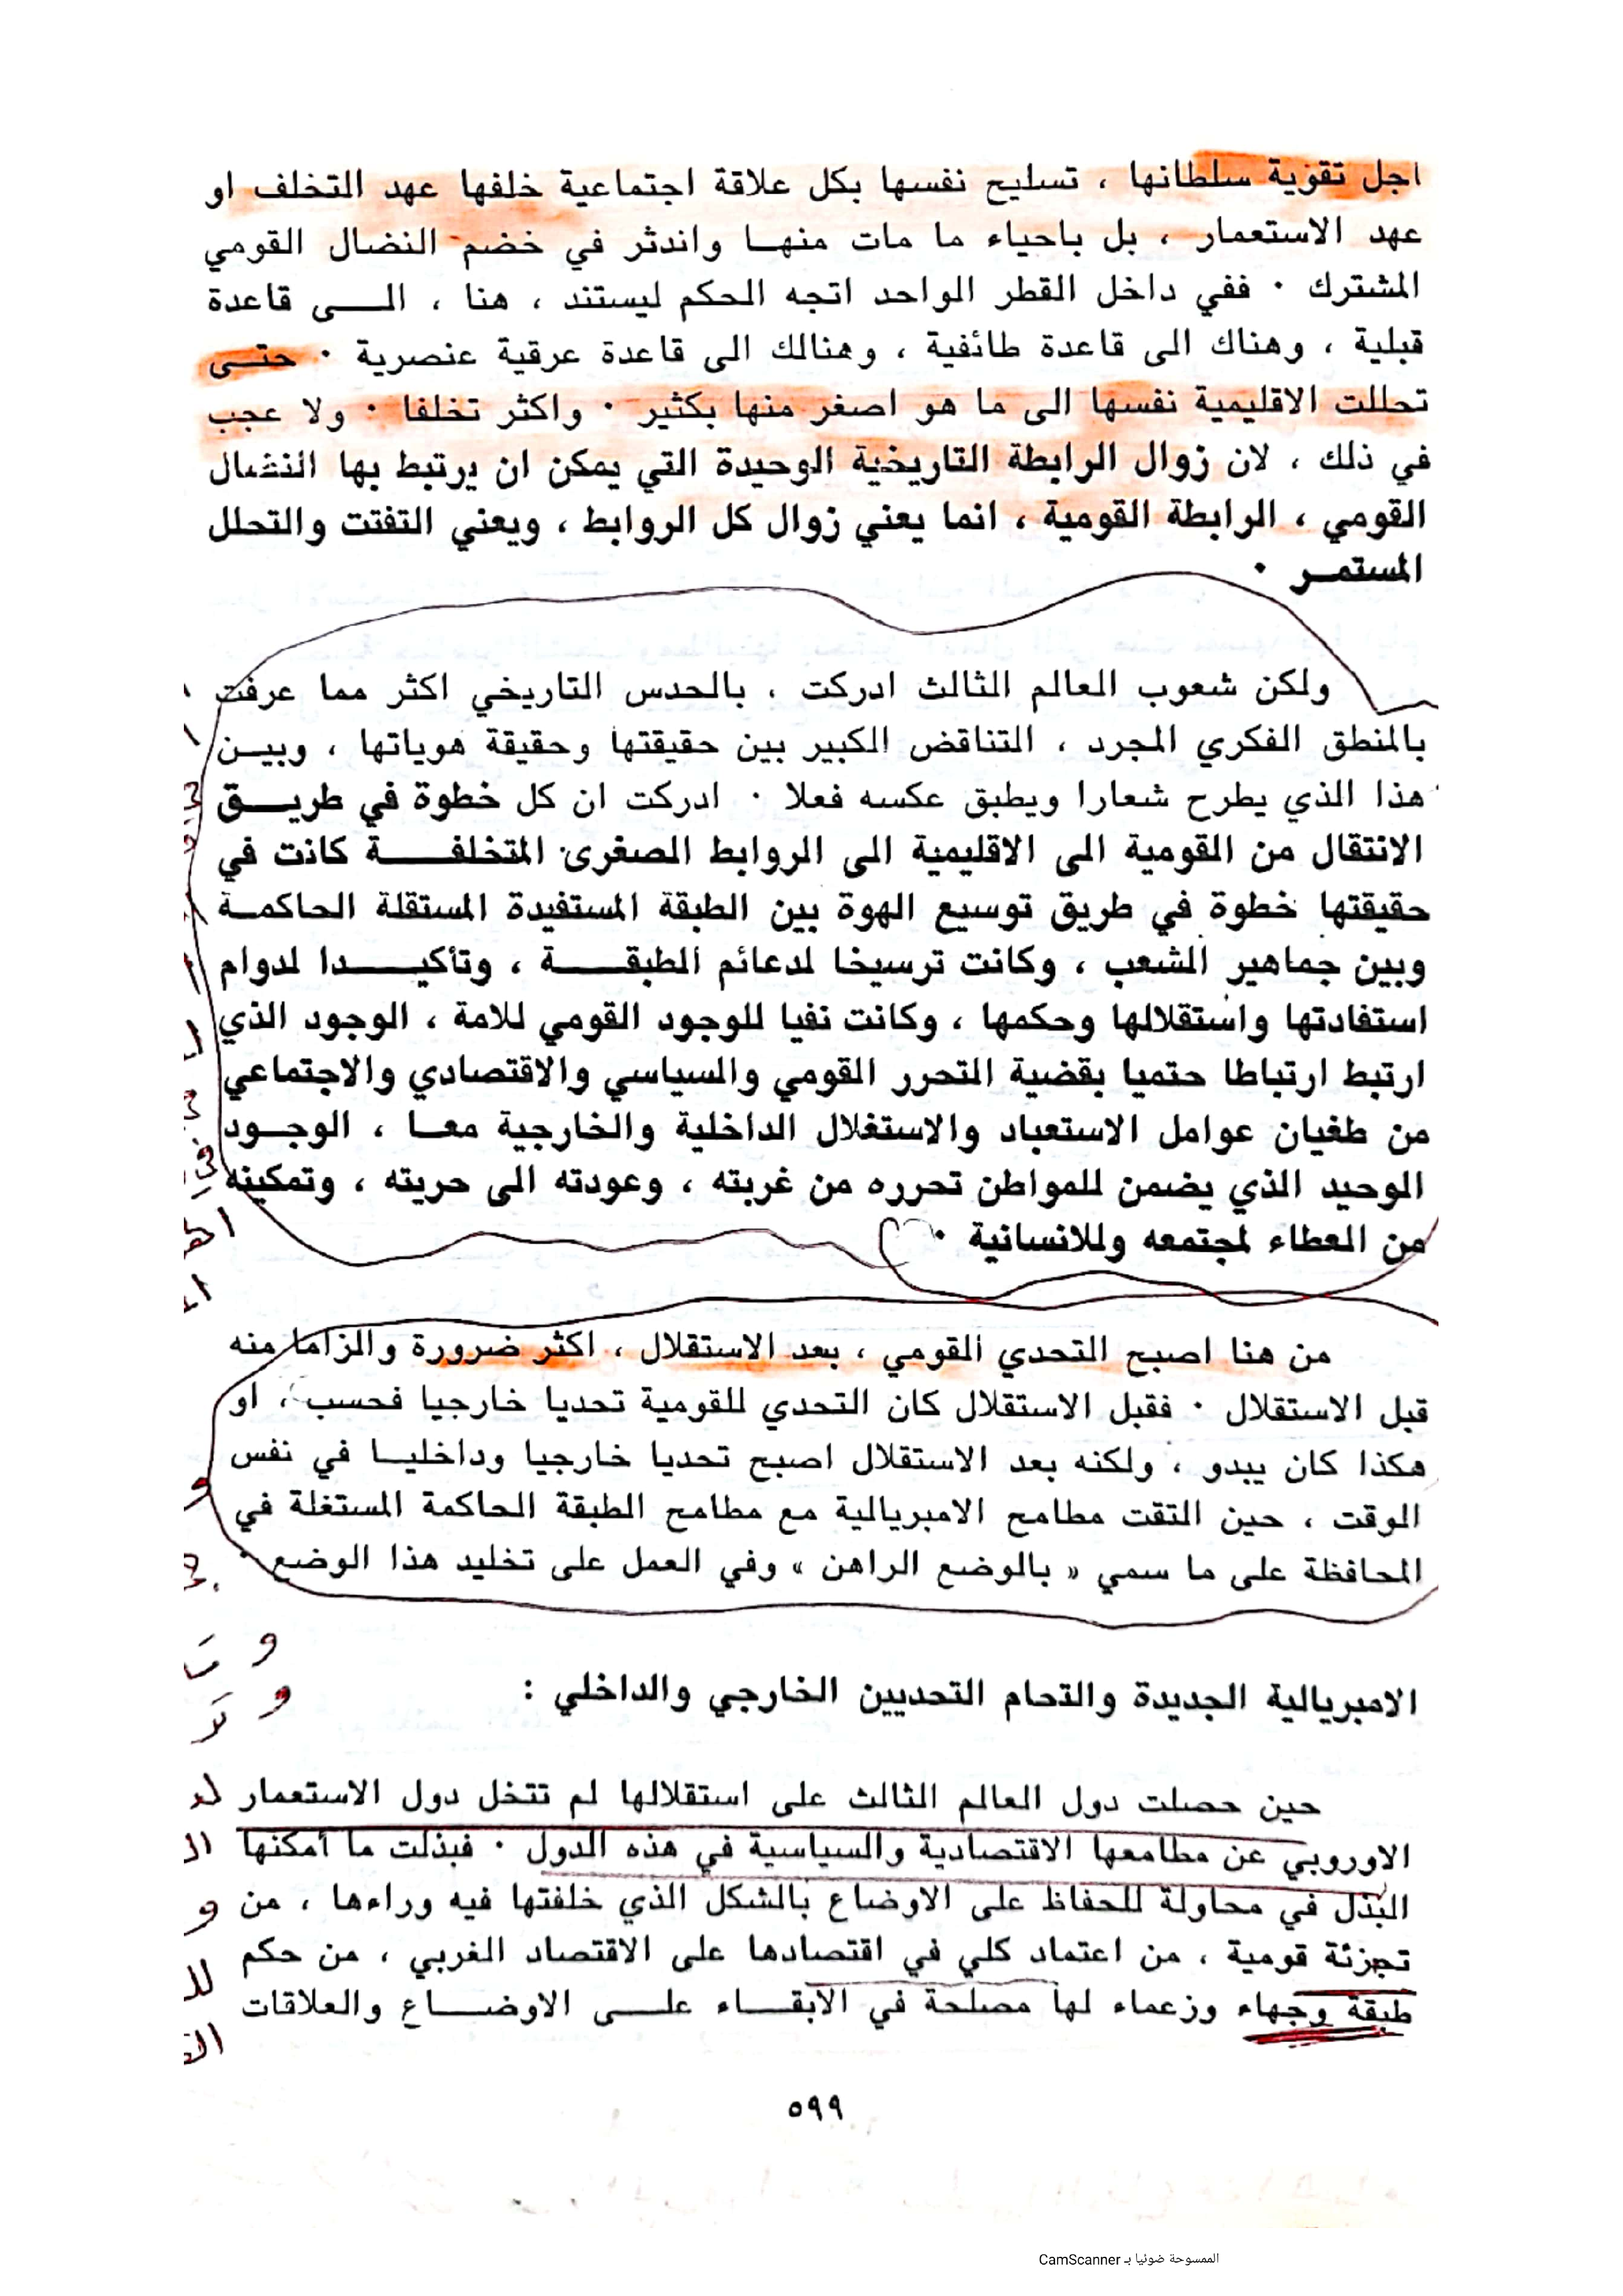 اجل تقوية سلطانها ، تسليح نفسها بكل علاقة اجتماعية خلفها عهد التخلف او
عهد الاستعمار ، بل باحياء ما مات منهـا واندثر في خضم النضال القومي
المشترك · ففي داخل القطر الواحد اتجه الحكم ليستند ، هنا ، الـــى قاعدة
قبلية ، وهناك الى قاعدة طائفية ، وهنالك الى قاعدة عرقية عنصرية · حتــى
تحللت الاقليمية نفسها الى ما هو اصغر منها بكثير · واكثر تخلفا · ولا عجب
في ذلك ، لان زوال الرابطة التاريخية الوحيدة التي يمكن ان يرتبط بها النضال
القومي ، الرابطة القومية ، انما يعني زوال كل الروابط ، ويعني التفتت والتحلل
المستمــر ·
ولكن شعوب العالم الثالث ادركت ، بالحدس التاريخي اكثر مما عرفت
بالمنطق الفكري المجرد ، التناقض الكبير بين حقيقتها وحقيقة هوياتها ، وبيــن
هذا الذي يطرح شعارا ويطبق عكسه فعلا · ادركت ان كل خطوة في طريــق
الانتقال من القومية الى الاقليمية الى الروابط الصغرى المتخلفـــــة كانت في
حقيقتها خطوة في طريق توسيع الهوة بين الطبقة المستفيدة المستقلة الحاكمــة
وبين جماهير الشعب ، وكانت ترسيخا لدعائم الطبقــــة ، وتأكيـــــدا لدوام
استفادتها واستقلالها وحكمها ، وكانت نفيا للوجود القومي للامة ، الوجود الذي
ارتبط ارتباطا حتميا بقضية التحرر القومي والسياسي والاقتصادي والاجتماعي
من طغيان عوامل الاستعباد والاستغلال الداخلية والخارجية معــا ، الوجــود
الوحيد الذي يضمن للمواطن تحرره من غربته ، وعودته الى حريته ، وتمكينه
من العطاء لمجتمعه وللانسانية ·
من هنا اصبح التحدي القومي ، بعد الاستقلال ، اكثر ضرورة والزاما منه
قبل الاستقلال · فقبل الاستقلال كان التحدي للقومية تحديا خارجيا فحسب ، او
هكذا كان يبدو ، ولكنه بعد الاستقلال اصبح تحديا خارجيا وداخليــا في نفس
الوقت ، حين التقت مطامح الامبريالية مع مطامح الطبقة الحاكمة المستغلة في
المحافظة على ما سمي « بالوضع الراهن » وفي العمل على تخليد هذا الوضع ·
الامبريالية الجديدة والتحام التحديين الخارجي والداخلي :
حين حصلت دول العالم الثالث على استقلالها لم تتخل دول الاستعمار
الاوروبي عن مطامعها الاقتصادية والسياسية في هذه الدول · فبذلت ما امكنها
البذل في محاولة للحفاظ على الاوضاع بالشكل الذي خلفتها فيه وراءها ، من
تجزئة قومية ، من اعتماد كلي في اقتصادها على الاقتصاد الغربي ، من حكم
طبقة وجهاء وزعماء لها مصلحة في الابقـــاء علـــى الاوضـــاع والعلاقات
٥٩٩
الممسوحة ضوئيا بـ CamScanner